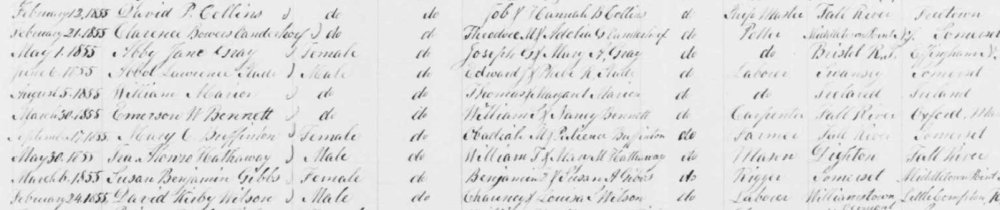 February 12, 1855 David P. Collins } do do Job & Hannah B Collins do Ship Master Fall River Freetown
February 21, 1855 Clarence Bowers } do do Theodore M & Adelia do Potter Somerset
May 1, 1855 Abby Jane Gray } Female do Joseph G & Mary A Gray do do Bristol R.I.
June 6, 1855 Abbot Lawrence Slade } Male do Edward & Phebe Slade do Laborer Swansey Somerset
August 5, 1855 William } do do Thomas & Margaret do do Ireland Ireland
March 30, 1855 Emerson W Bennett } do do William & Nancy Bennett do Carpenter Fall River Oxford
September 17, 1855 Mary C Buffinton } Female do Obadiah M & Patience Buffinton do Farmer Fall River Somerset
May 30, 1855 Alonzo Hathaway } Male do William & Mary M Hathaway do Mason Dighton Fall River
March 6, 1855 Susan Benjamin Gibbs } Female do Benjamin & Susan A Gibbs do Rigger Somerset Middletown
February 24, 1855 David Kirby Wilson } Male do Chauncy & Louisa Wilson do Laborer Williamstown Little Compton